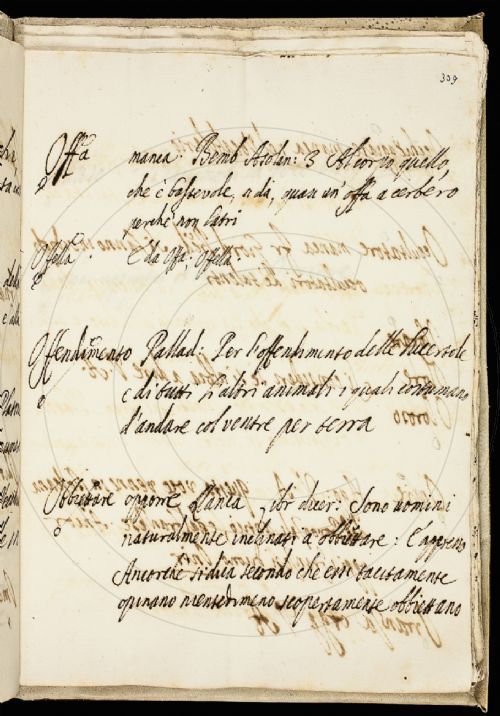 309
Offa manca: Bemb Asolan: 3 Al corpo quello,
che è bastevole, si dà, quasi un' offa a cerbero
perche non latri
Offella. È da Offa; Offella
Offendimento Pallad: Per l'offendimento delle Lucertole
e di tutti gl'altri animali i quali costumano
d'andare col ventre per terra
Obbiettare opporre manca, dicer: Sono uomini
naturalmente inclinati a obbiettare: E appresso
Ancorche si dica secondo che essi tacitamente
opinano nientedimeno scopertamente obbiettano